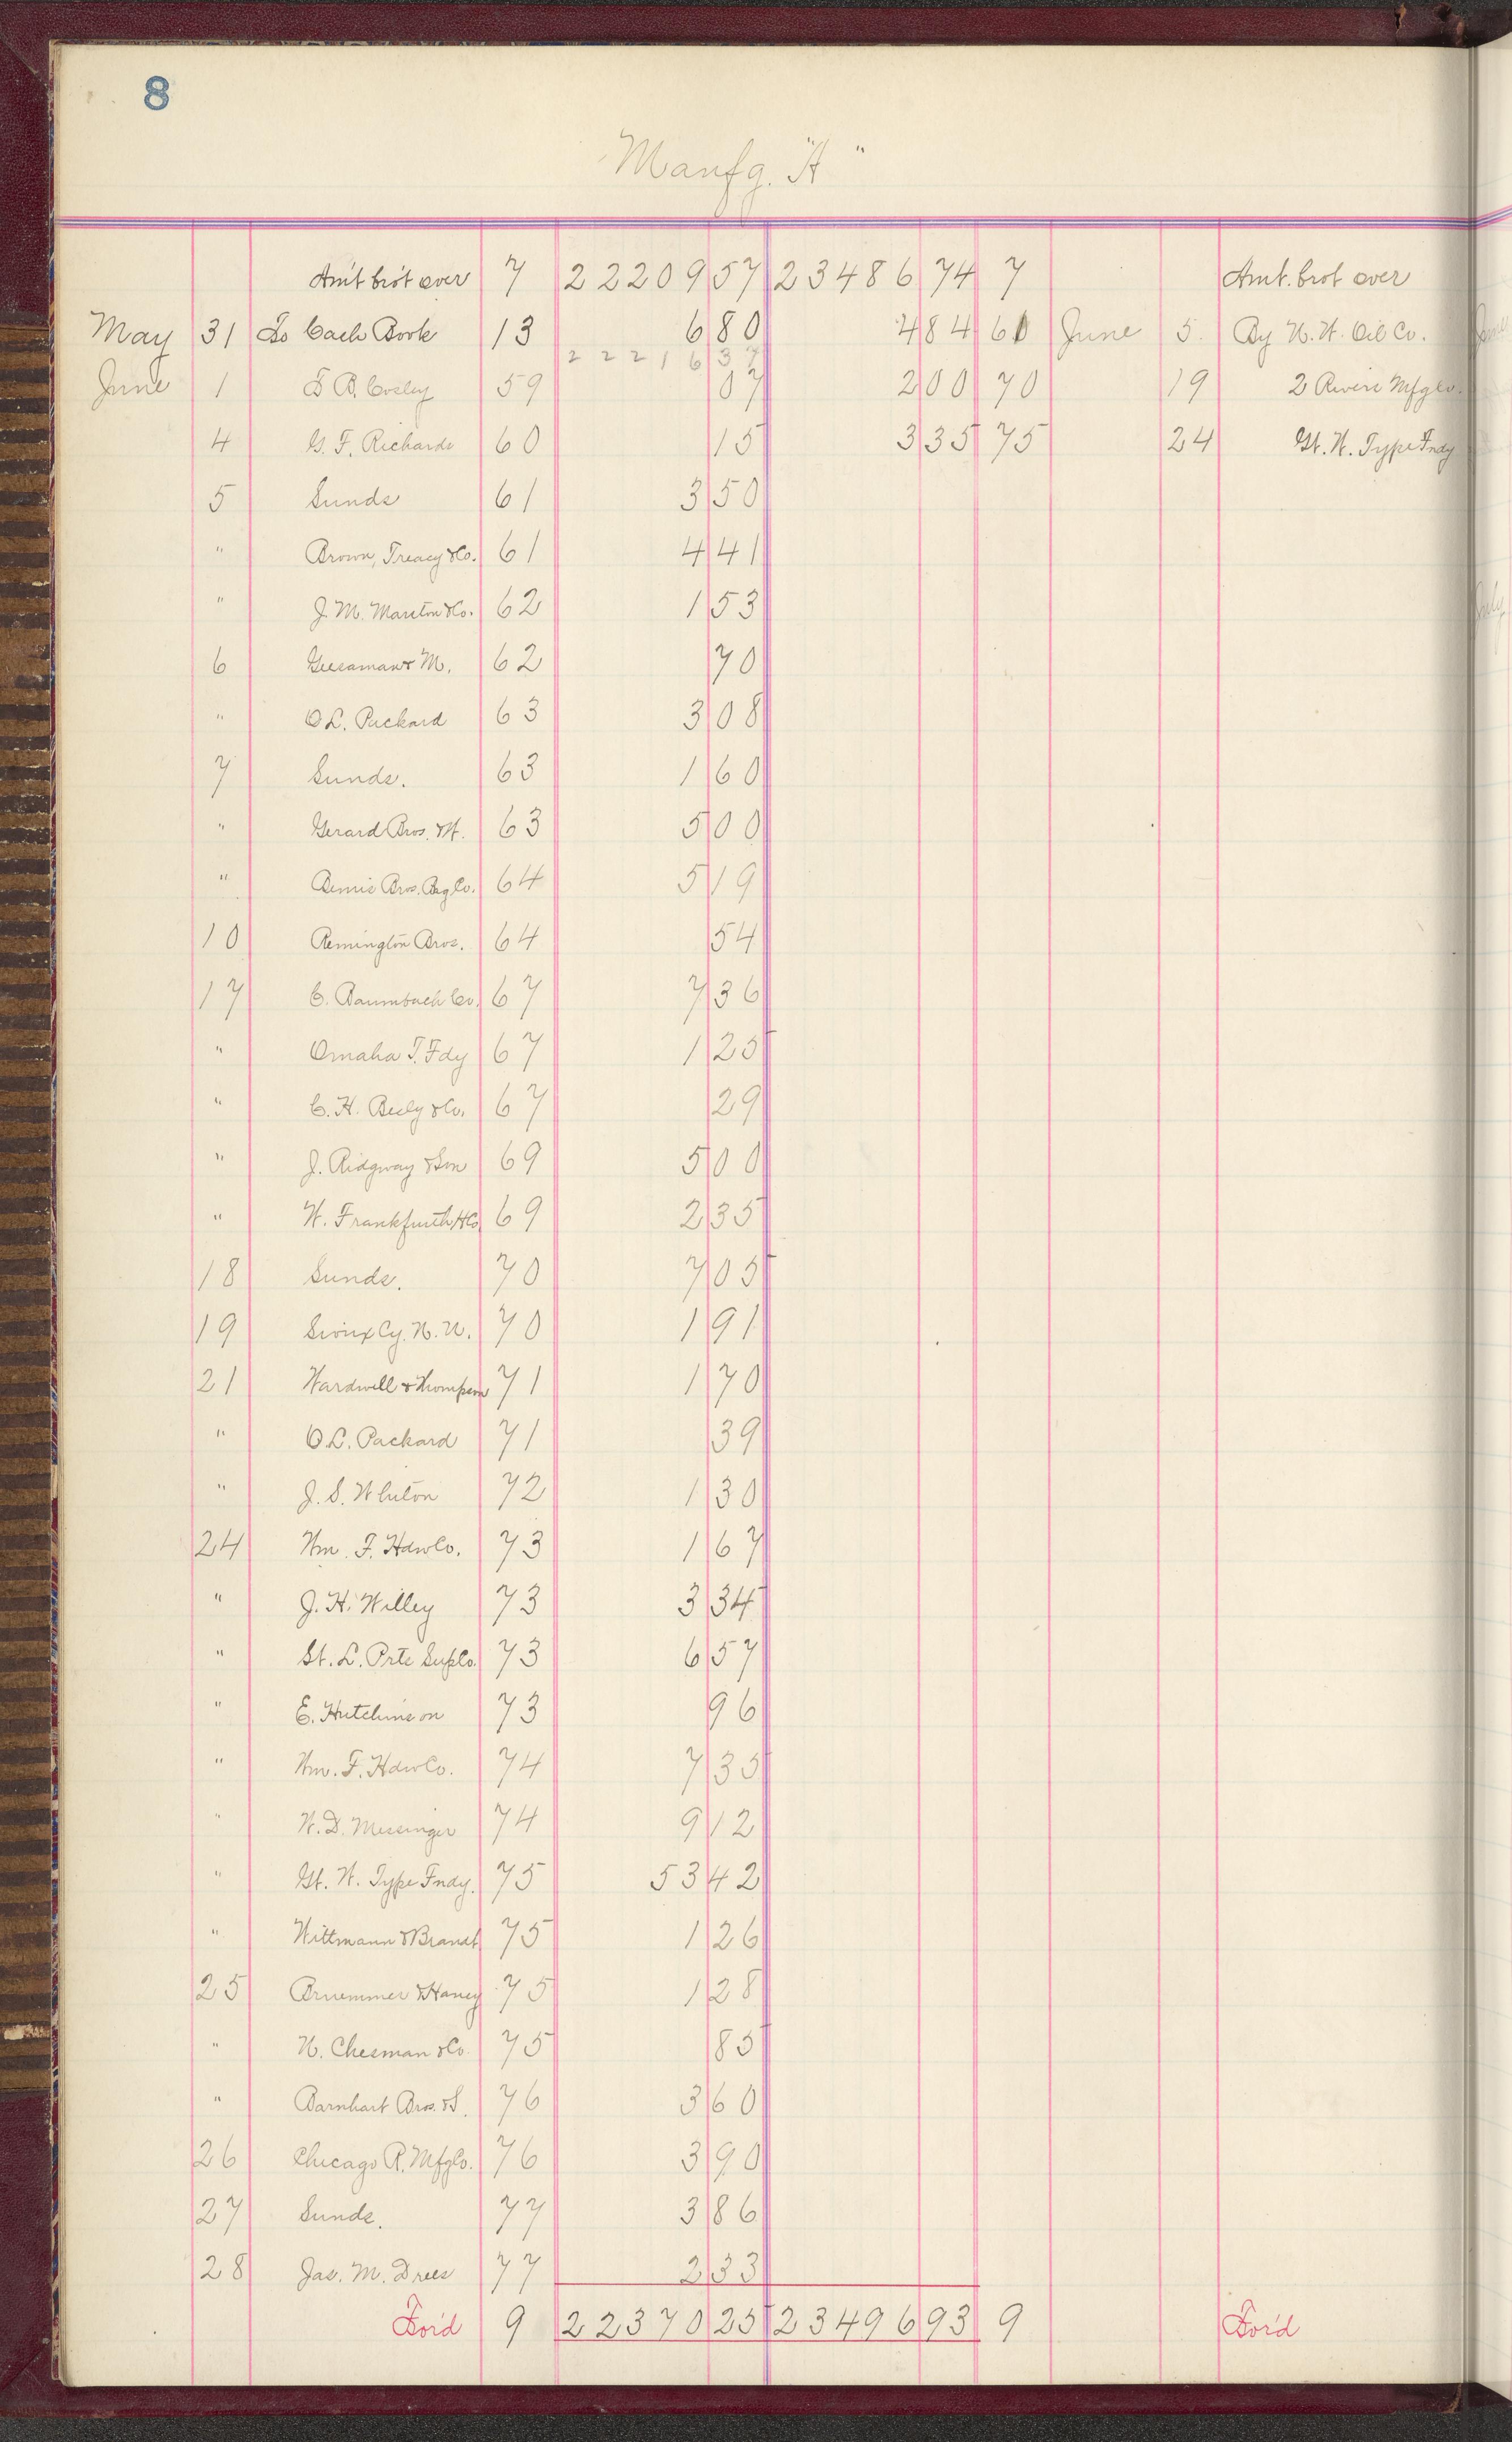 8
Manfg. "A"
Am't bro't over 7 22209 57 23486 74 7 Amt. brot over
May 31 To Cash Book 13 6 80 4 84 61 June 5 By N. W. Oil Co.
22216 37
June 1 59 07 2 00 70 19 2 Rivers Mfg Co.
4 G. F. Richards 60 15 3 35 75 24 Gt. W. Type Fndy
5 Sunds 61 3 50
" Brown, Treacy & Co. 61 4 41
" J. M. Marston & Co. 62 1 53
6 & M. 62 70
" O L. Packard 63 3 08
7 Sunds. 63 1 60
" Gerard Bros. & H. 63 5 00
" Bemis Bros. Bag Co. 64 5 19
10 Remington Bros. 64 54
17 C. Baumbach Co. 67 7 36
" Omaha T. Fdy 67 1 25
" C. H. Besly & Co. 67 29
" J. Ridgway & Son 69 5 00
" W. Frankfurth H Co 69 2 35
18 Sunds. 70 7 05
19 Sioux Cy. N. U. 70 1 91
21 Wardwell & Thompson 71 1 70
" O. L. Packard 71 39
" J. S. Whiton 72 1 30
24 Wm. F. Hdw Co. 73 1 67
" J. H. Willey 73 3 34
" St. L. Prtc Sup Co. 73 6 57
" E. Hutchinson 73 96
" Wm. F. Hdw Co. 74 7 35
" W. D. Messinger 74 9 12
" Gt. W. Type Fndy. 75 53 42
" Wittmann & Brandt 75 1 26
25 Bruemmer & Haney 75 1 28
" N. Chesman & Co. 75 85
" Barnhart Bros. & S. 76 3 60
26 Chicago R. Mfg Co. 76 3 90
27 Sunds. 77 3 86
28 Jas. M. Drees 77 2 33
For'd 9 22370 25 23496 93 9 For'd